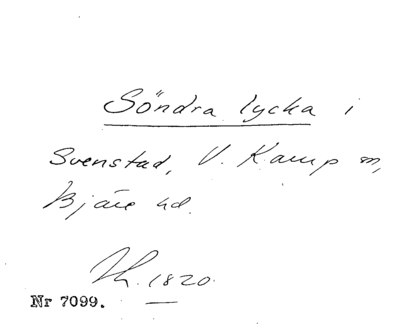 Söndra lycka i
Svenstad, V. Karup sn,
Bjäre hd.
Th. 1820.
Nr 7099.